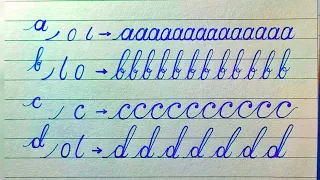 a / o l → aaaaaaaaaaaaaa
b / l o → bbbbbbbbbbbb
c / c → cccccccccc
d / o l → dddddddd